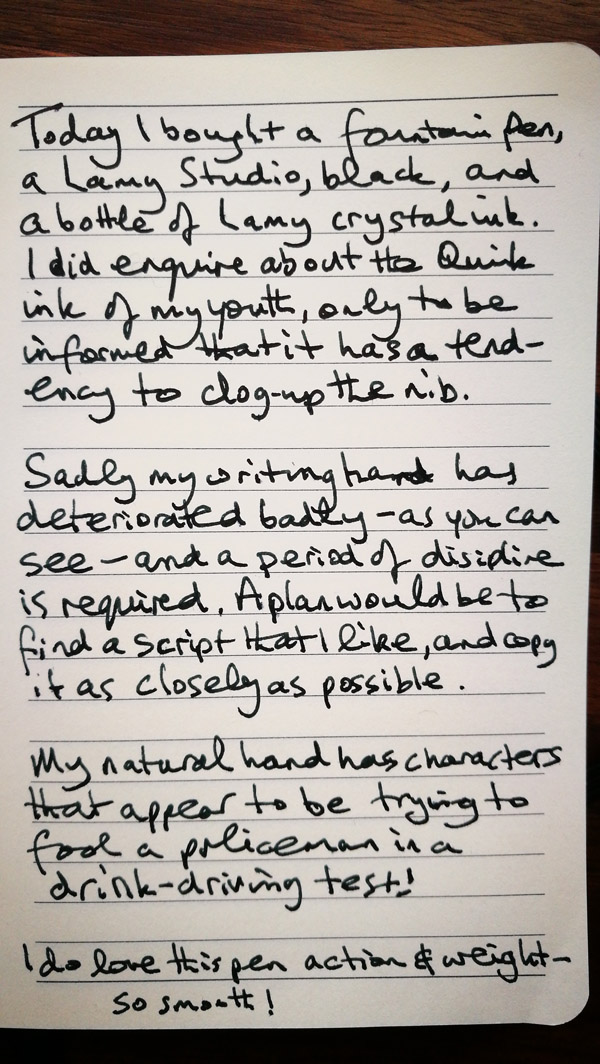 Today I bought a fountain pen,
a Lamy Studio, black, and
a bottle of Lamy crystal ink.
I did enquire about the Quink
ink of my youth, only to be
informed that it has a tend-
ency to clog-up the nib.
Sadly my writing hand has
deteriorated badly - as you can
see - and a period of discipline
is required. A plan would be to
find a script that I like, and copy
it as closely as possible.
My natural hand has characters
that appear to be trying to
fool a policeman in a
drink-driving test!
I do love this pen action & weight -
so smooth!